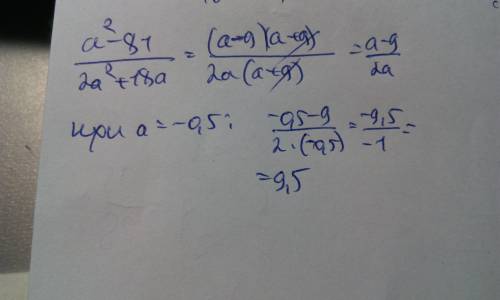 a²-81/2a²+18a = (a-9)(a+9)/2a(a+9) = a-9/2a
при a=-0,5: -0,5-9/2·(-0,5) = -9,5/-1 =
=9,5